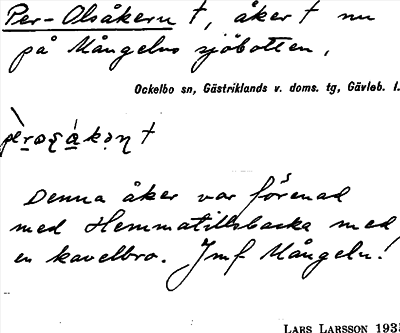 Per-Olsåkern †, åker † nu
på Mångelns sjöbotten,
Ockelbo sn, Gästriklands v. doms. tg, Gävleb. l.
Denna åker var förenad
med Hemmatillsbacka med
en kavelbro. Jmf Mångeln!
LARS LARSSON 193